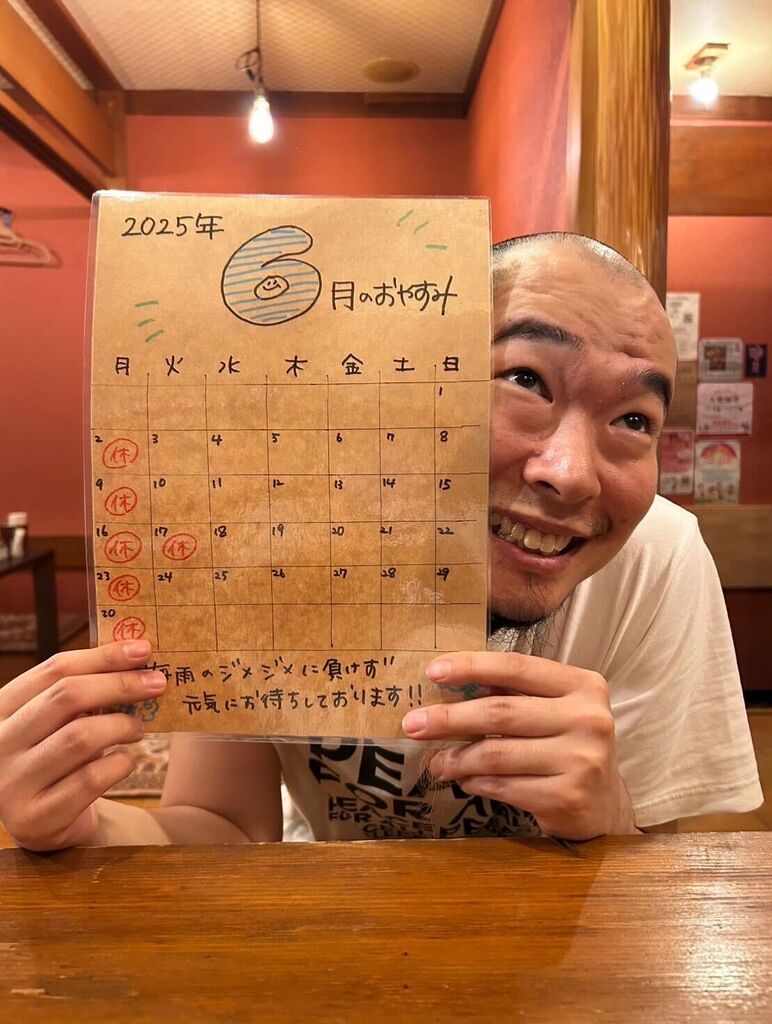 2025年
6月のおやすみ
月 火 水 木 金 土 日
1
2 休 3 4 5 6 7 8
9 休 10 11 12 13 14 15
16 休 17 休 18 19 20 21 22
23 休 24 25 26 27 28 29
30 休
梅雨のジメジメに負けず
元気にお待ちしております!!